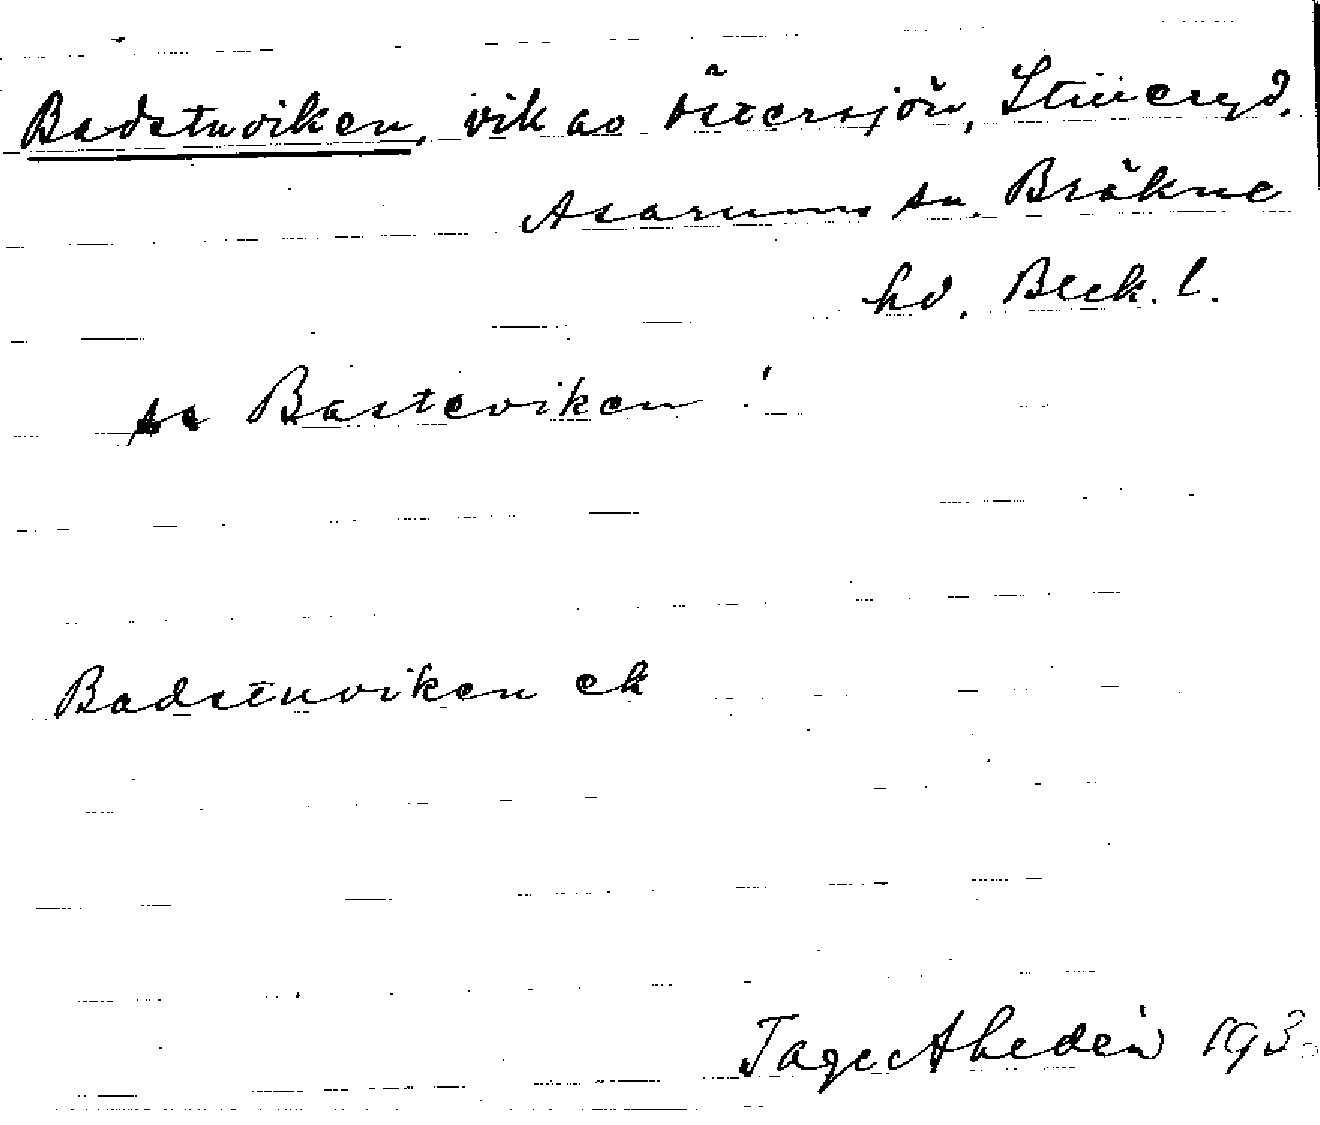 Badstuviken, vik av Östersjön, Stilleryd.
Asarums sn. Bräkne
hd. Blek. l.
sa Basteviken!
Badstuviken ek
Tage Ahedén 193